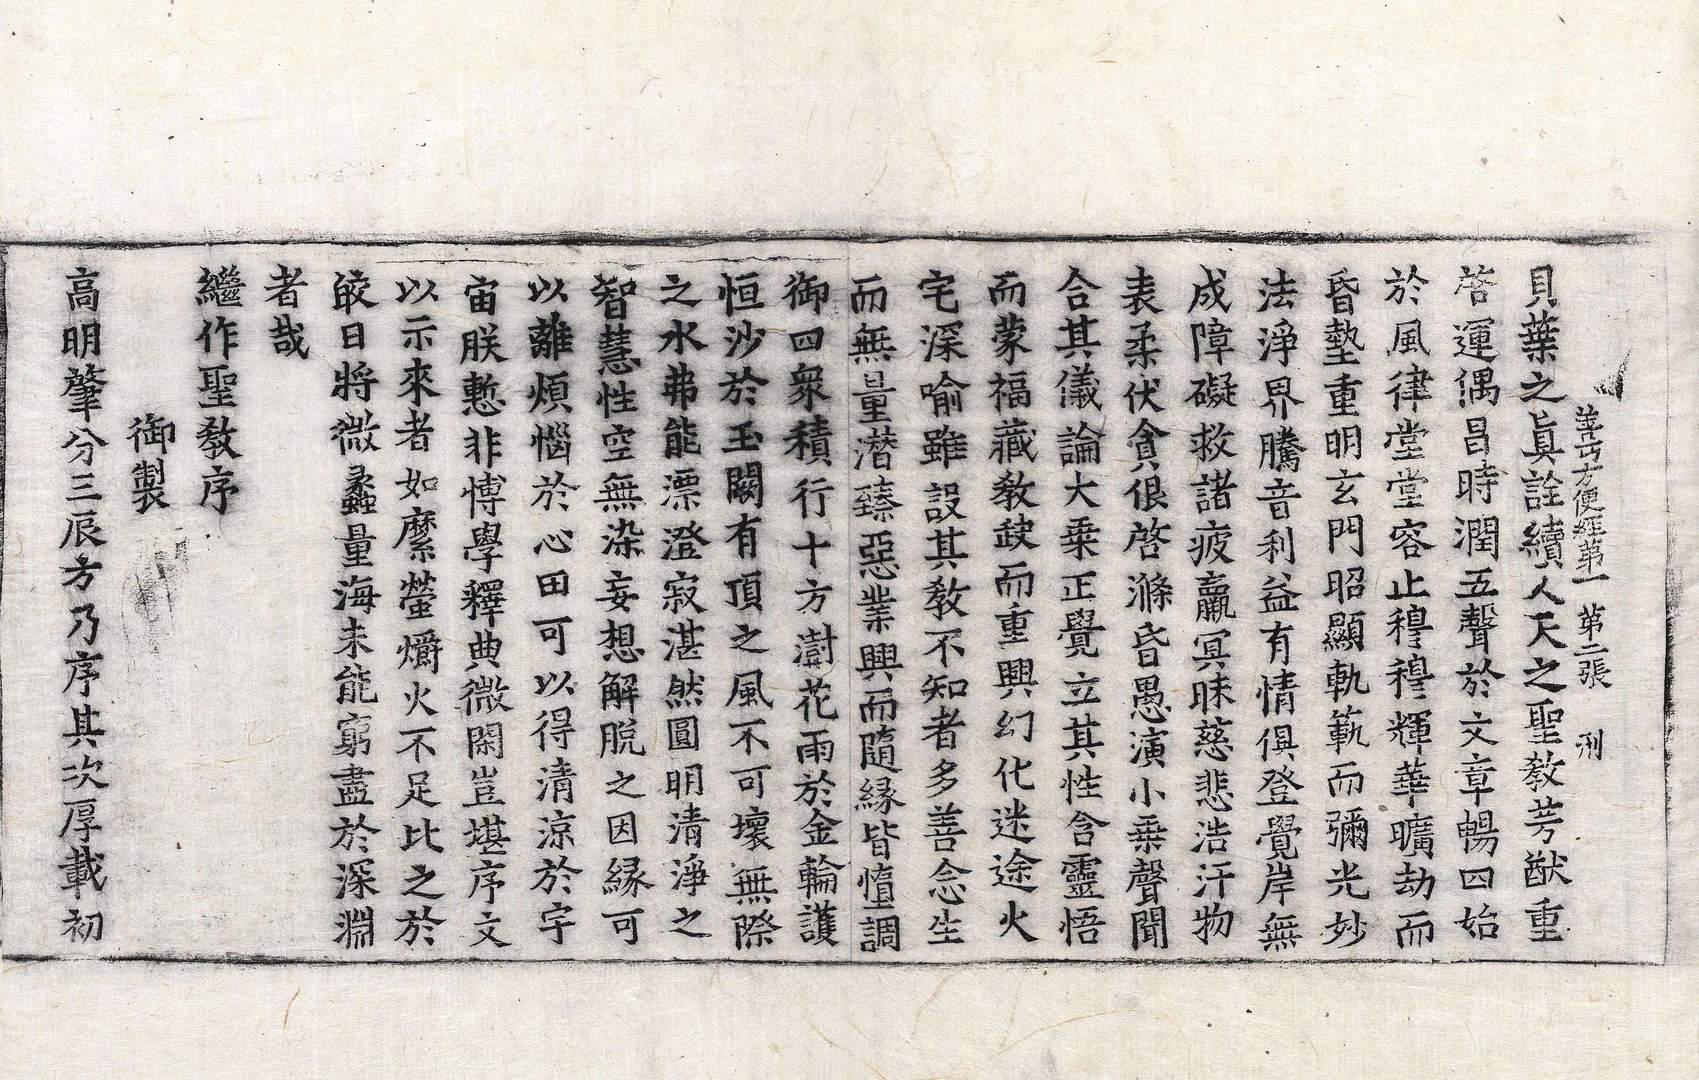 善巧方便經第一　第二張　刑
貝葉之眞詮續人天之聖敎芳猷重
啓運偶昌時潤五聲於文章暢四始
於風律堂堂容止穆穆輝華曠劫而
昏墊重明玄門昭顯軌範而彌光妙
法淨界騰音利益有情俱登覺岸無
成障礙救諸疲羸冥昧慈悲浩汗物
表柔伏貪很啓滌昏愚演小乗聲聞
合其儀論大乗正覺立其性含靈悟
而蒙福藏敎缺而重興幻化迷途火
宅深喻雖設其敎不知者多善念生
而無量潛臻惡業興而隨緣皆墮調
御四衆積行十方澍花雨於金輪護
恒沙於玉闕有頂之風不可壞無際
之水弗能漂澄寂湛然圓明清淨之
智慧性空無染妄想解脫之因緣可
以離煩惱於心田可以得清涼於宇
宙朕慙非博學釋典微閑豈堪序文
以示來者如縻螢爝火不足比之於
皎日將微蠡量海未能窮盡於深淵
者哉
繼作聖敎序
御製
高明肇分三辰方乃序其次厚載初